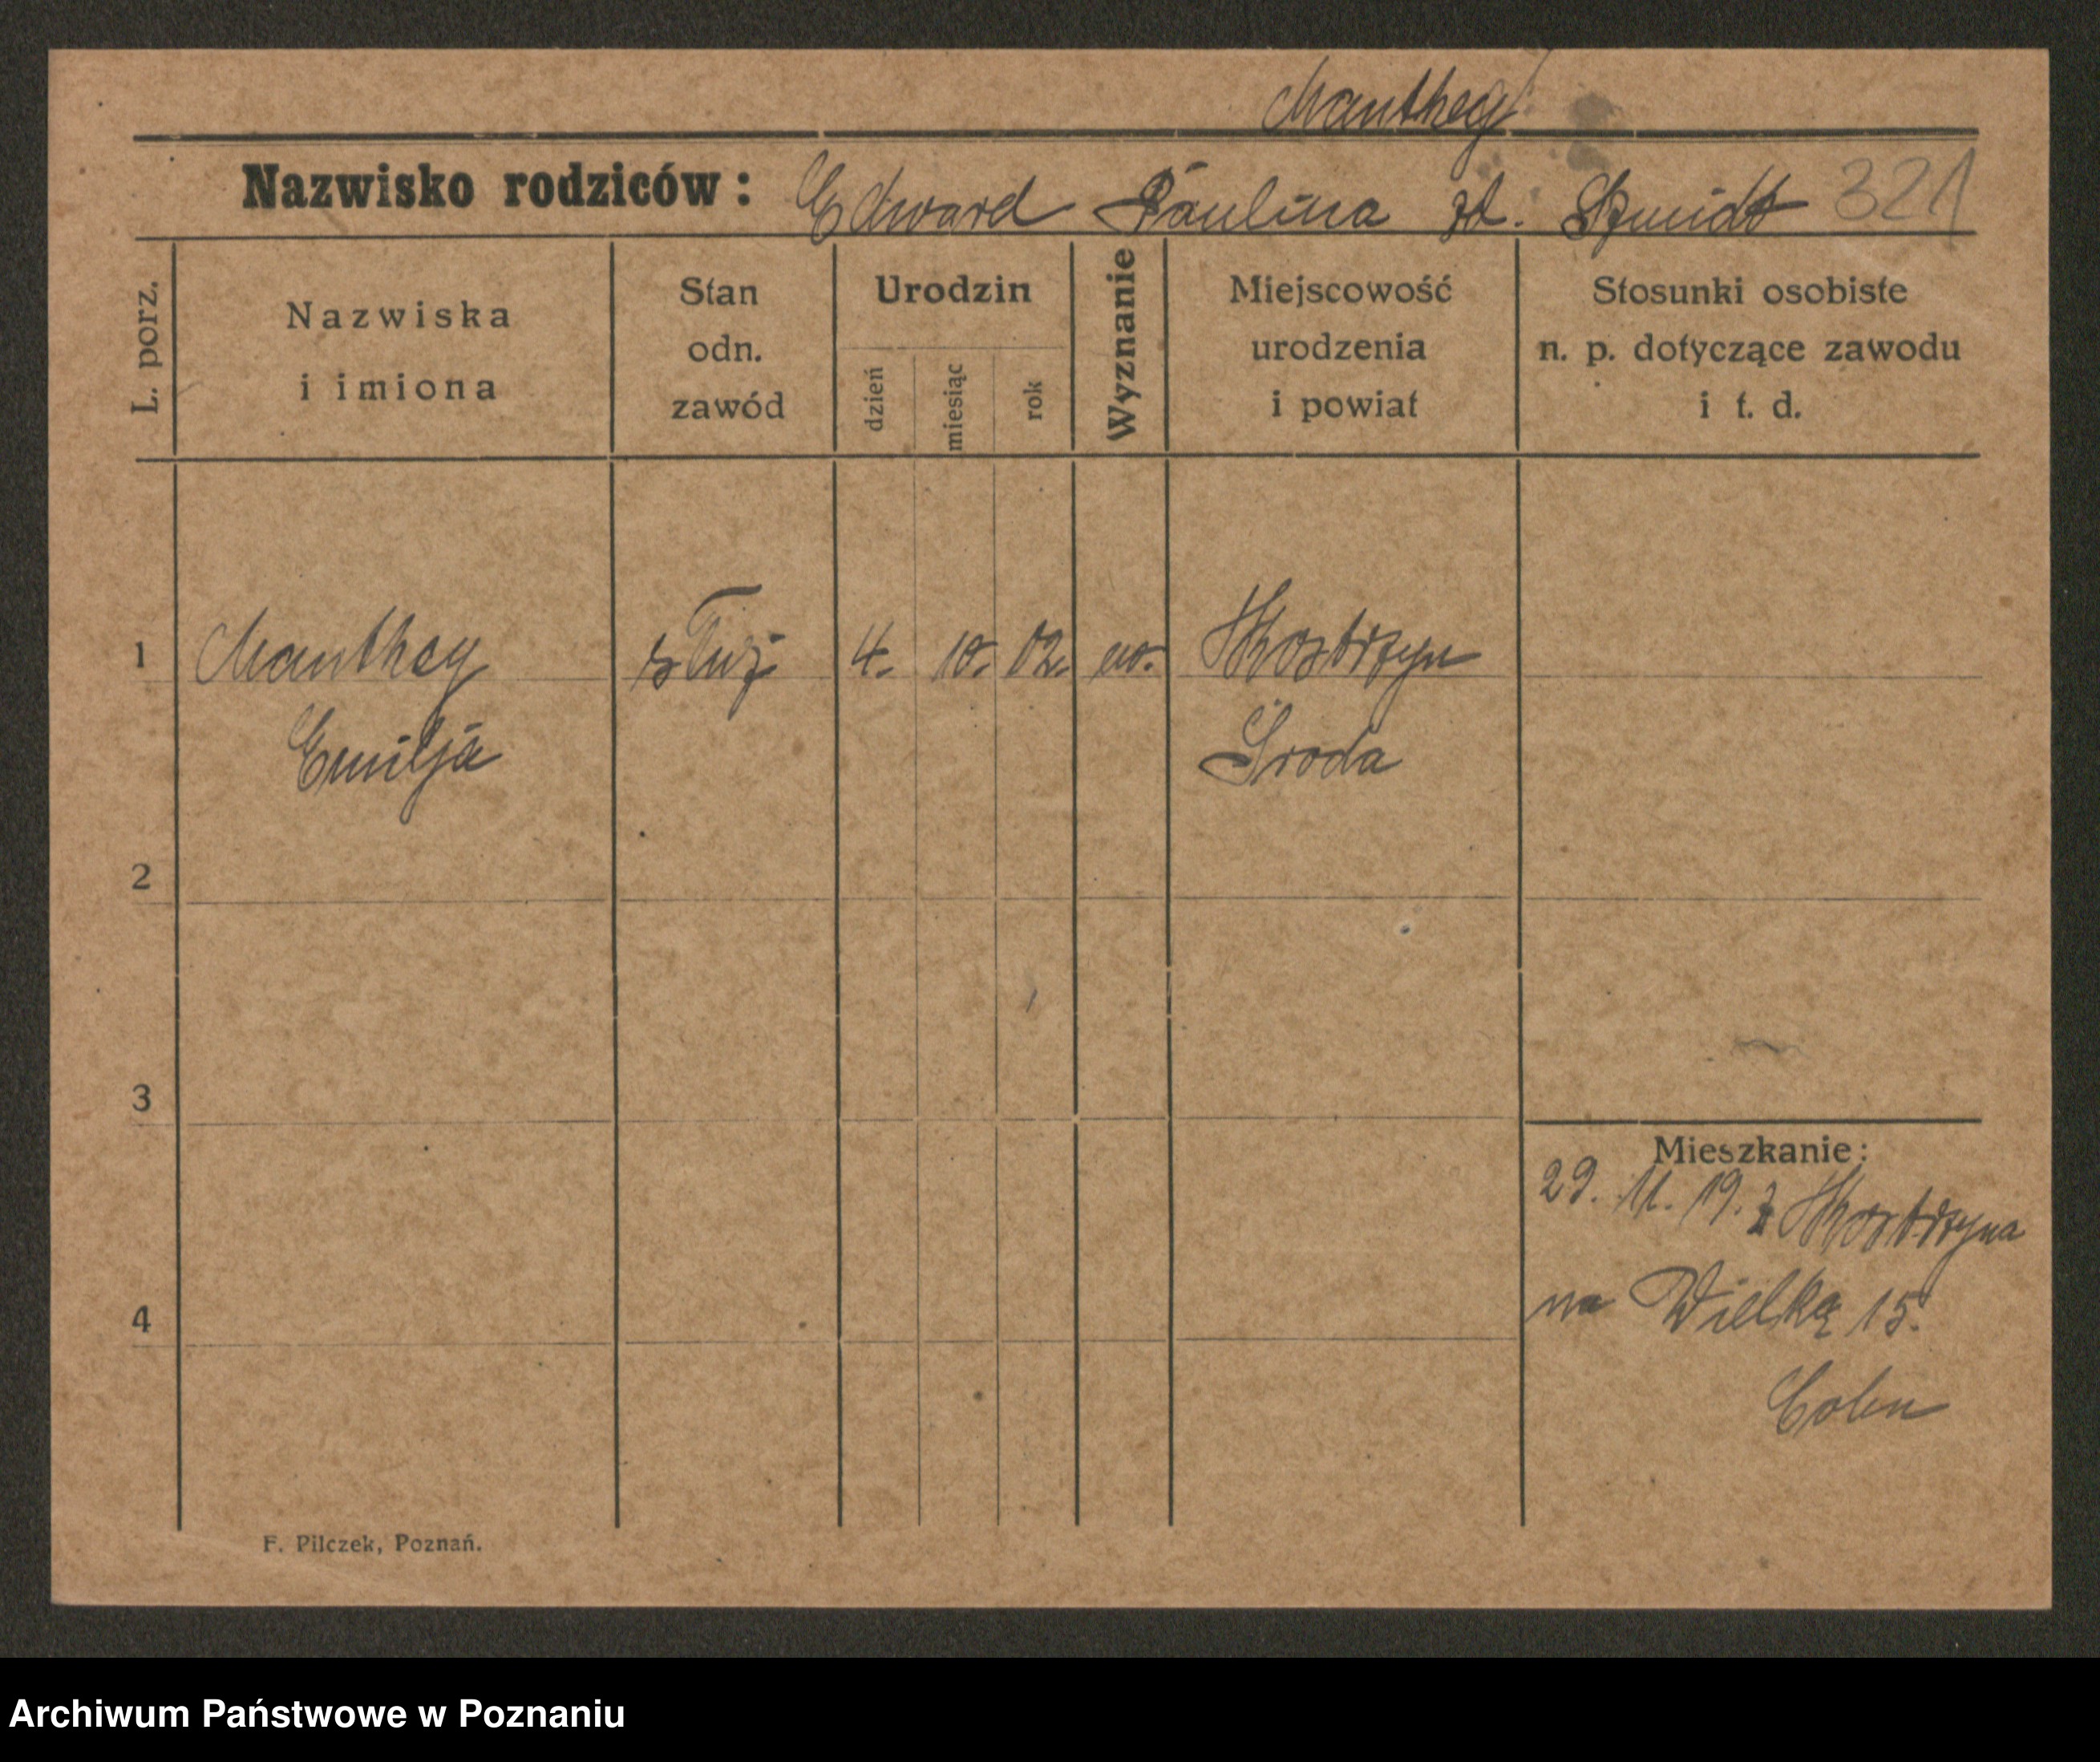 Manthey
Nazwisko rodziców: Edward Paulina zd. Szmidt 321
L. porz.
Nazwiska
i imiona
Stan
odn.
zawód
Urodzin
dzień
miesiąc
rok
Wyznanie
Miejscowość
urodzenia
i powiat
Stosunki osobiste
n. p. dotyczące zawodu
i t. d.
1 Manthey służ 4. 10. 02. ew. Kostrzyn
Emilja Środa
2
3
Mieszkanie:
29. 11. 19. z Kostrzyna
4 na Wielką 15.
F. Pilczek, Poznań.
Archiwum Państwowe w Poznaniu